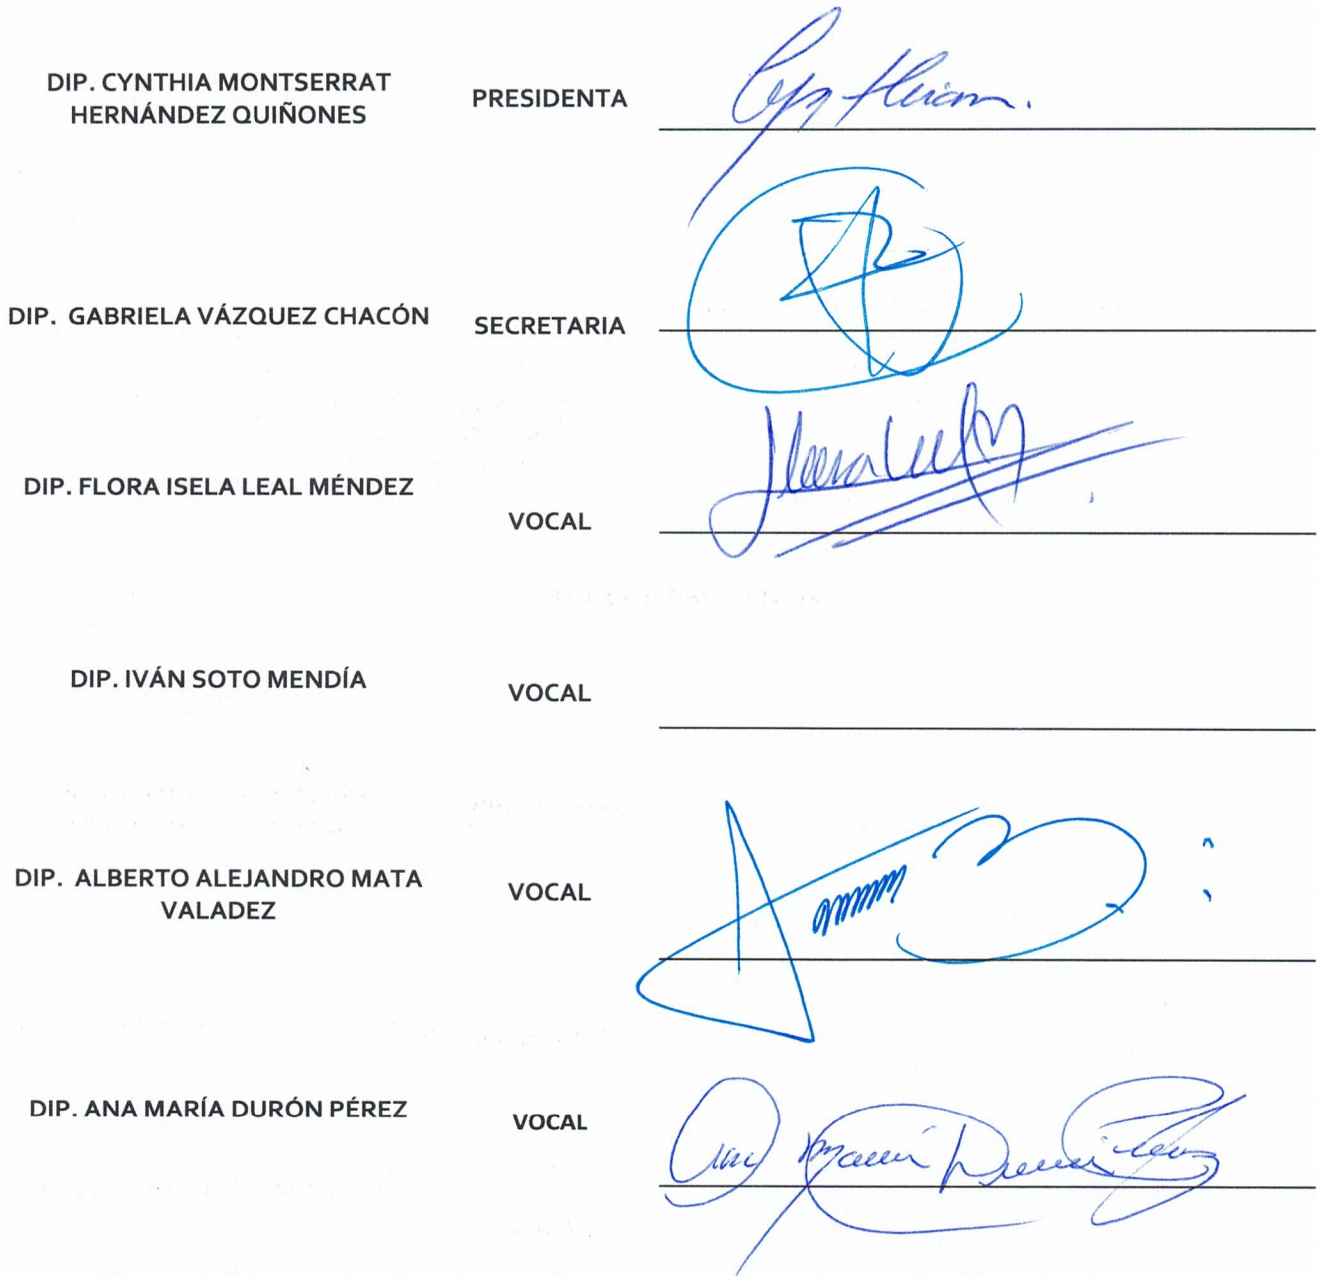 DIP. CYNTHIA MONTSERRAT
HERNÁNDEZ QUIÑONES
PRESIDENTA
DIP. GABRIELA VÁZQUEZ CHACÓN
SECRETARIA
DIP. FLORA ISELA LEAL MÉNDEZ
VOCAL
DIP. IVÁN SOTO MENDÍA
VOCAL
DIP. ALBERTO ALEJANDRO MATA
VALADEZ
VOCAL
DIP. ANA MARÍA DURÓN PÉREZ
VOCAL